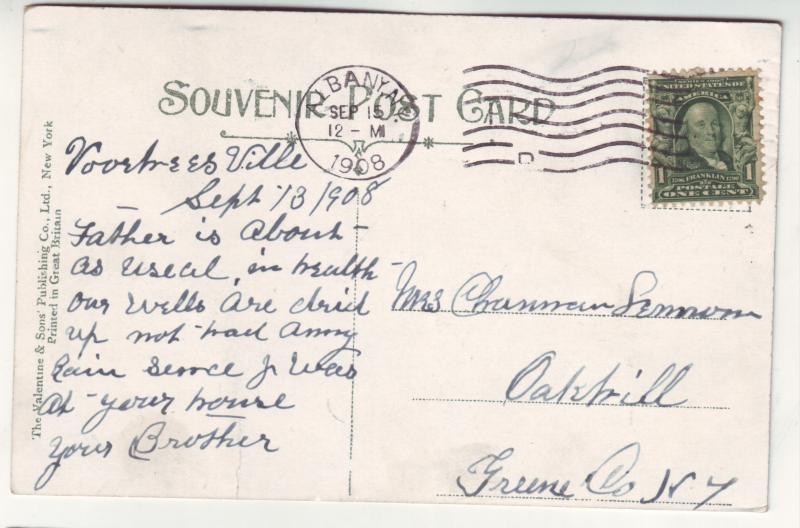 SOUVENIR POST CARD
ALBANY N.Y.
SEP 15
12 - M
1908
D
SERIES 1902
UNITED STATES OF
AMERICA
1 1
FRANKLIN
POSTAGE
ONE CENT
The Valentine & Sons' Publishing Co., Ltd., New York
Printed in Great Britain
Voorheesville
Sept 13/1908
Father is About
as useal, in health
our wells are dried
up not had Anny
Rain sence I Was
At your house
your Brother
Mrs
Oakhill
Greene Co N Y